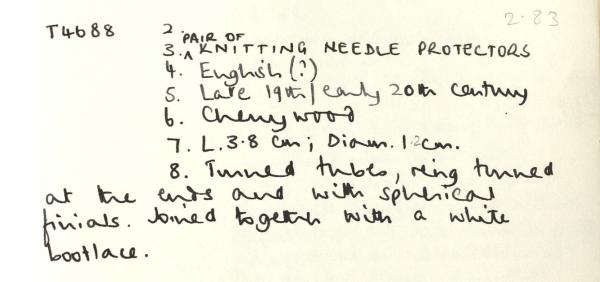 2.83
T4688 2.
3. PAIR OF KNITTING NEEDLE PROTECTORS
4. English (?)
5. Late 19th / early 20th century
6. Cherrywood
7. L. 3.8 cm; Diam. 1.2cm.
8. Turned tubes, ring turned
at the ends and with spherical
finials. Joined together with a white
bootlace.